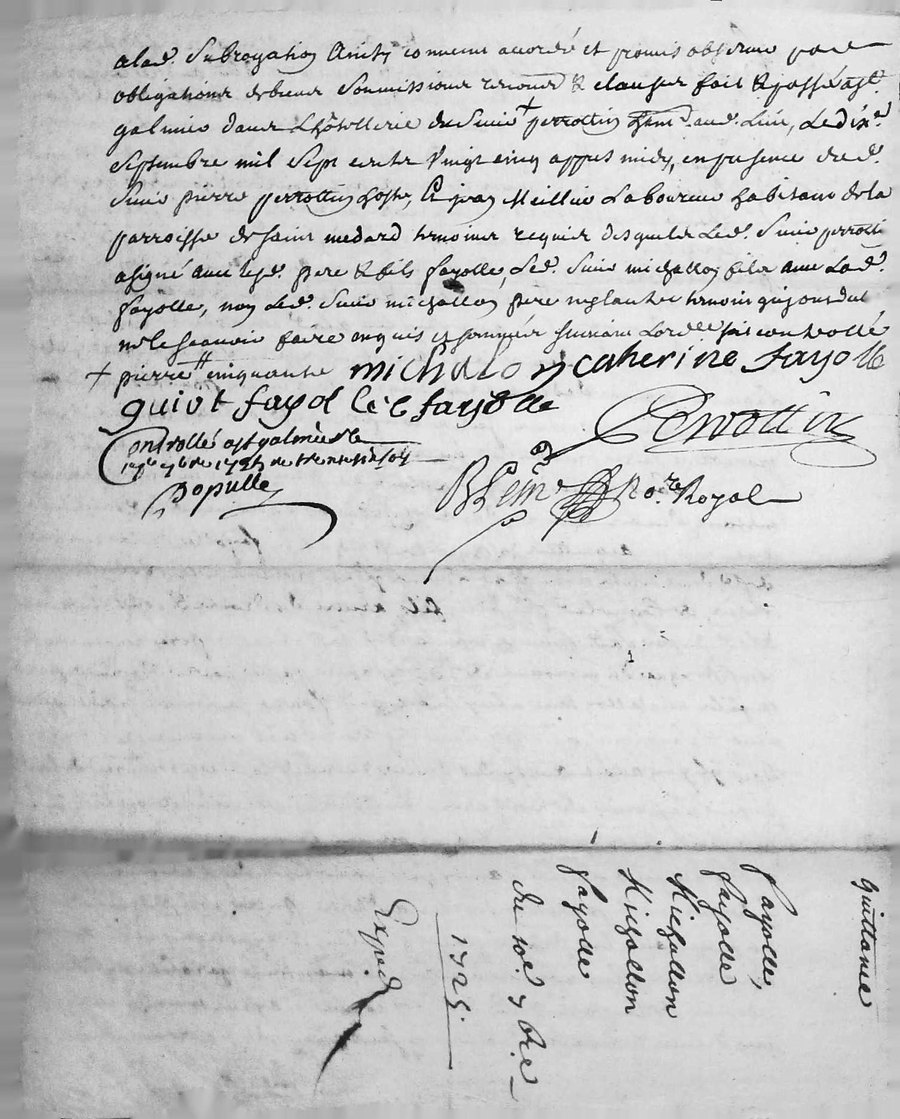 alad. Subrogation Ainsy convenu accordé et promis observer par
obligations de biens Soumissions renon.s & clauses fait & passé a St
galmier dans L'hostellerie du Sieur + perrottin audt. Lieu, Le dixe.
Septembre mil Sept cents Vingt cinq appres midy, en presence dud.
Sieur pierre perrottin hoste, & jean Meillier Laboureur habitans de la
parroisse de Saint medard temoins requis desquels Led. Sieur perrottin
a signé avec lesd. pere & fils fayolle, Led. Sieur michallon fils avec Lad.
fayolle, non Led. Sieur michallon pere ny l'autre temoin qui ont dit
ne le scavoir faire enquis et sommés suivant L'ordce. sera controllé
+ pierre cinquante michalon catherine fayolle
guiot fayolle fayolle
Perrottin
Controllé a St galmier le
7bre 1725
Populle
No.re Royal
quittance
fayolle,
fayolle
Michallon
Michallon
fayolle
du 10e. 7bre
1725.
Exped.